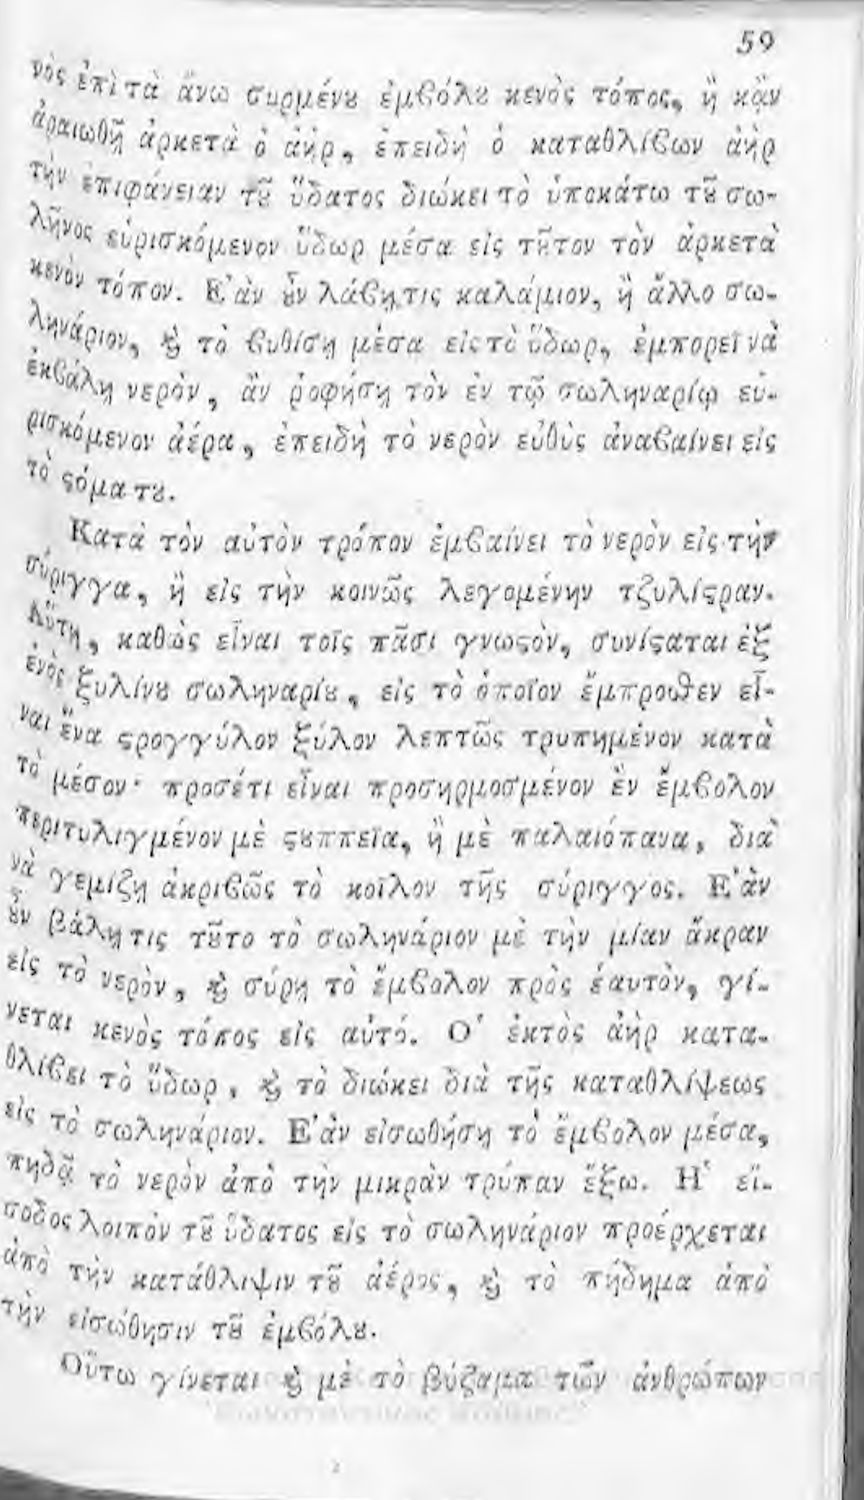 59
νὸς ἐπὶ τὰ ἄνω συρμένȣ ἐμβόλȣ κενὸς τόπος, ἢ κᾂν
ἀραιωθῇ ἀρκετὰ ὁ ἀὴρ, ἐπειδὴ ὁ καταθλίβων ἀὴρ
τὴν ἐπιφάνειαν τȣ͂ ὕδατος διώκει τὸ ὑποκάτω τȣ͂ σω-
λῆνος εὑρισκόμενον ὕδωρ μέσα εἰς τȣ͂τον τὸν ἀρκετὰ
κενὸν τόπον. Ἐὰν ȣ͖̓ν λάβῃ τις καλάμιον, ἢ ἄλλο σω-
ληνάριον, ϗ τὸ βυθίσῃ μέσα εἰς τὸ ὕδωρ, ἐμπορεῖ νὰ
ἐκβάλῃ νερὸν, ἂν ῥοφήσῃ τὸν ἐν τῷ σωληναρίῳ εὑ-
ρισκόμενον ἀέρα, ἐπειδὴ τὸ νερὸν εὐθὺς ἀναβαίνει εἰς
τὸ ϛόμα τȣ.
Κατὰ τὸν αὐτὸν τρόπον ἐμβαίνει τὸ νερὸν εἰς τὴν
σύριγγα, ἢ εἰς τὴν κοινῶς λεγομένην τζυλίϛραν.
Αὕτη, καθὼς εἶναι τοῖς πᾶσι γνωϛὸν, συνίϛαται ἐξ
ἑνὸς ξυλίνȣ σωληναρίȣ, εἰς τὸ ὁποῖον ἔμπροσθεν εἶ-
ναι ἕνα ϛρογγύλον ξύλον λεπτῶς τρυπημένον κατὰ
τὸ μέσον· προσέτι εἶναι προσηρμοσμένον ἓν ἔμβολον
περιτυλιγμένον μὲ ϛȣππεῖα, ἢ μὲ παλαιόπανα, διὰ
νὰ γεμίζῃ ἀκριβῶς τὸ κοῖλον τῆς σύριγγος. Ἐὰν
ȣ͖̓ν βάλῃ τις τȣ͂το τὸ σωληνάριον μὲ τὴν μίαν ἄκραν
εἰς τὸ νερὸν, ϗ σύρῃ τὸ ἔμβολον πρὸς ἑαυτὸν, γί-
νεται κενὸς τόπος εἰς αὐτό. Ὁ ἐκτὸς ἀὴρ κατα-
θλίβει τὸ ὕδωρ, ϗ τὸ διώκει διὰ τῆς καταθλίψεως
εἰς τὸ σωληνάριον. Ἐὰν εἰσωθήσῃ τὸ ἔμβολον μέσα,
πηδᾷ τὸ νερὸν ἀπὸ τὴν μικρὰν τρύπαν ἔξω. Ἡ εἴ-
σοδος λοιπὸν τȣ͂ ὕδατος εἰς τὸ σωληνάριον προέρχεται
ἀπὸ τὴν κατάθλιψιν τȣ͂ ἀέρος, ϗ τὸ πήδημα ἀπὸ
τὴν εἰσώθησιν τȣ͂ ἐμβόλȣ.
Οὕτω γίνεται ϗ μὲ τὸ βύζαμα τῶν ἀνθρώπων